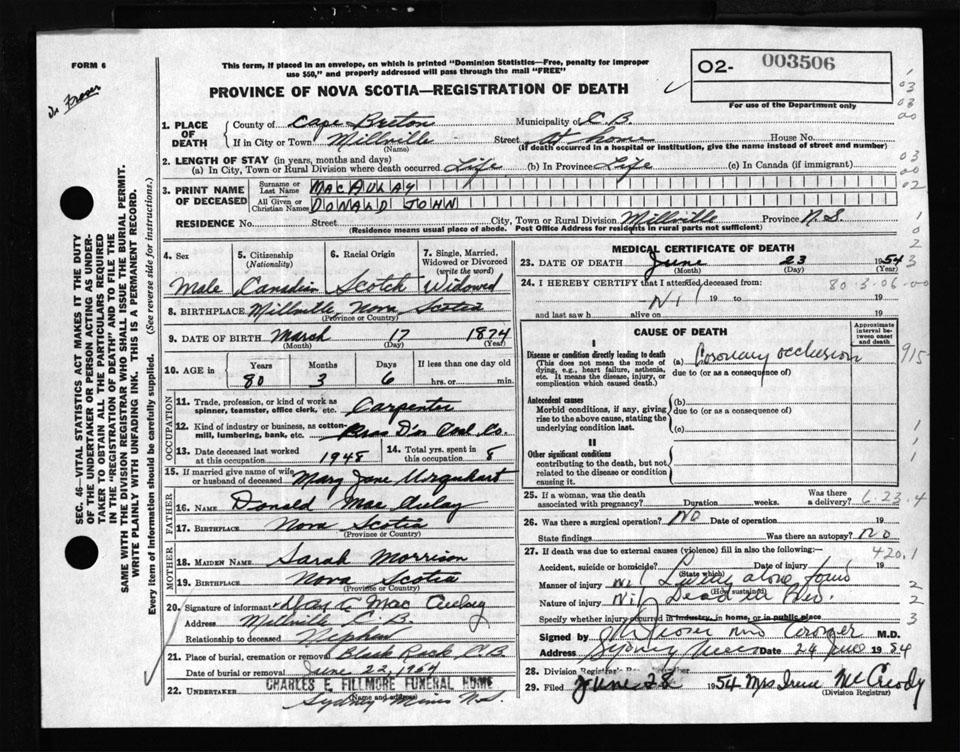 FORM 6
This form, if placed in an envelope, on which is printed "Dominion Statistics—Free, penalty for improper
use $50," and properly addressed will pass through the mail "FREE"
PROVINCE OF NOVA SCOTIA—REGISTRATION OF DEATH
O2- 003506
For use of the Department only
Dr Fraser
SEC. 46—VITAL STATISTICS ACT MAKES IT THE DUTY
OF THE UNDERTAKER OR PERSON ACTING AS UNDER-
TAKER TO OBTAIN ALL THE PARTICULARS REQUIRED
IN THE "REGISTRATION OF DEATH" AND TO FILE THE
SAME WITH THE DIVISION REGISTRAR WHO SHALL ISSUE THE BURIAL PERMIT.
WRITE PLAINLY WITH UNFADING INK. THIS IS A PERMANENT RECORD.
Every item of information should be carefully supplied. (See reverse side for instructions.)
1. PLACE OF DEATH
County of Cape Breton Municipality of C.B.
If in City or Town Millville Street At home House No.
(Name) (If death occurred in a hospital or institution, give the name instead of street and number)
2. LENGTH OF STAY (in years, months and days)
(a) In City, Town or Rural Division where death occurred Life (b) In Province Life (c) In Canada (if immigrant)
3. PRINT NAME OF DECEASED
Surname or Last Name MACAULAY
All Given or Christian Names DONALD JOHN
RESIDENCE No. Street City, Town or Rural Division Millville Province N.S.
(Residence means usual place of abode. Post Office Address for residents in rural parts not sufficient)
4. Sex 5. Citizenship (Nationality) 6. Racial Origin 7. Single, Married, Widowed or Divorced (write the word)
Male Canadian Scotch Widowed
8. BIRTHPLACE Millville Nova Scotia
(Province or Country)
9. DATE OF BIRTH March 17 1874
(Month) (Day) (Year)
10. AGE in Years Months Days If less than one day old
80 3 6 hrs. or min.
OCCUPATION
11. Trade, profession, or kind of work as spinner, teamster, office clerk, etc. Carpenter
12. Kind of industry or business, as cotton-mill, lumbering, bank, etc. Bras D'or Coal Co.
13. Date deceased last worked at this occupation 1948 14. Total yrs. spent in this occupation 8
15. If married give name of wife or husband of deceased Mary Jane Urquhart
FATHER
16. NAME Donald Mac Aulay
17. BIRTHPLACE Nova Scotia
(Province or Country)
MOTHER
18. MAIDEN NAME Sarah Morrison
19. BIRTHPLACE Nova Scotia
(Province or Country)
20. Signature of informant Dan A Mac Aulay
Address Millville C.B.
Relationship to deceased Nephew
21. Place of burial, cremation or removal Black Rock C.B
Date of burial or removal June 1954
22. UNDERTAKER CHARLES E. FILLMORE FUNERAL HOME
(Name and address)
Sydney Mines N.S.
MEDICAL CERTIFICATE OF DEATH
23. DATE OF DEATH June 23 1954
(Month) (Day) (Year)
24. I HEREBY CERTIFY that I attended deceased from: 80-3-06-00
Nil 19 to 19
and last saw h alive on 19
CAUSE OF DEATH
Approximate interval between onset and death
I
Disease or condition directly leading to death
(This does not mean the mode of dying, e.g., heart failure, asthenia, etc. It means the disease, injury, or complication which caused death.)
(a) Coronary occlusion 915
due to (or as a consequence of)
Antecedent causes
Morbid conditions, if any, giving rise to the above cause, stating the underlying condition last.
(b)
due to (or as a consequence of)
(c)
II
Other significant conditions
contributing to the death, but not related to the disease or condition causing it.
25. If a woman, was the death associated with pregnancy? Duration weeks. Was there a delivery? 6.23.4
26. Was there a surgical operation? NO Date of operation 19
State findings Was there an autopsy? NO
27. If death was due to external causes (violence) fill in also the following:— 420.1
Accident, suicide or homicide? (State which) Date of injury 19
Manner of injury Nil Living alone found
(How sustained)
Nature of injury Nil Dead in Bed.
Specify whether injury occurred in industry, in home, or in public place
Signed by Fraser MD Coroner M.D.
Address Sydney Mines Date 24 June 1954
28. Division Registrar's
29. Filed June 28 1954 Mrs Irene McCready
(Division Registrar)